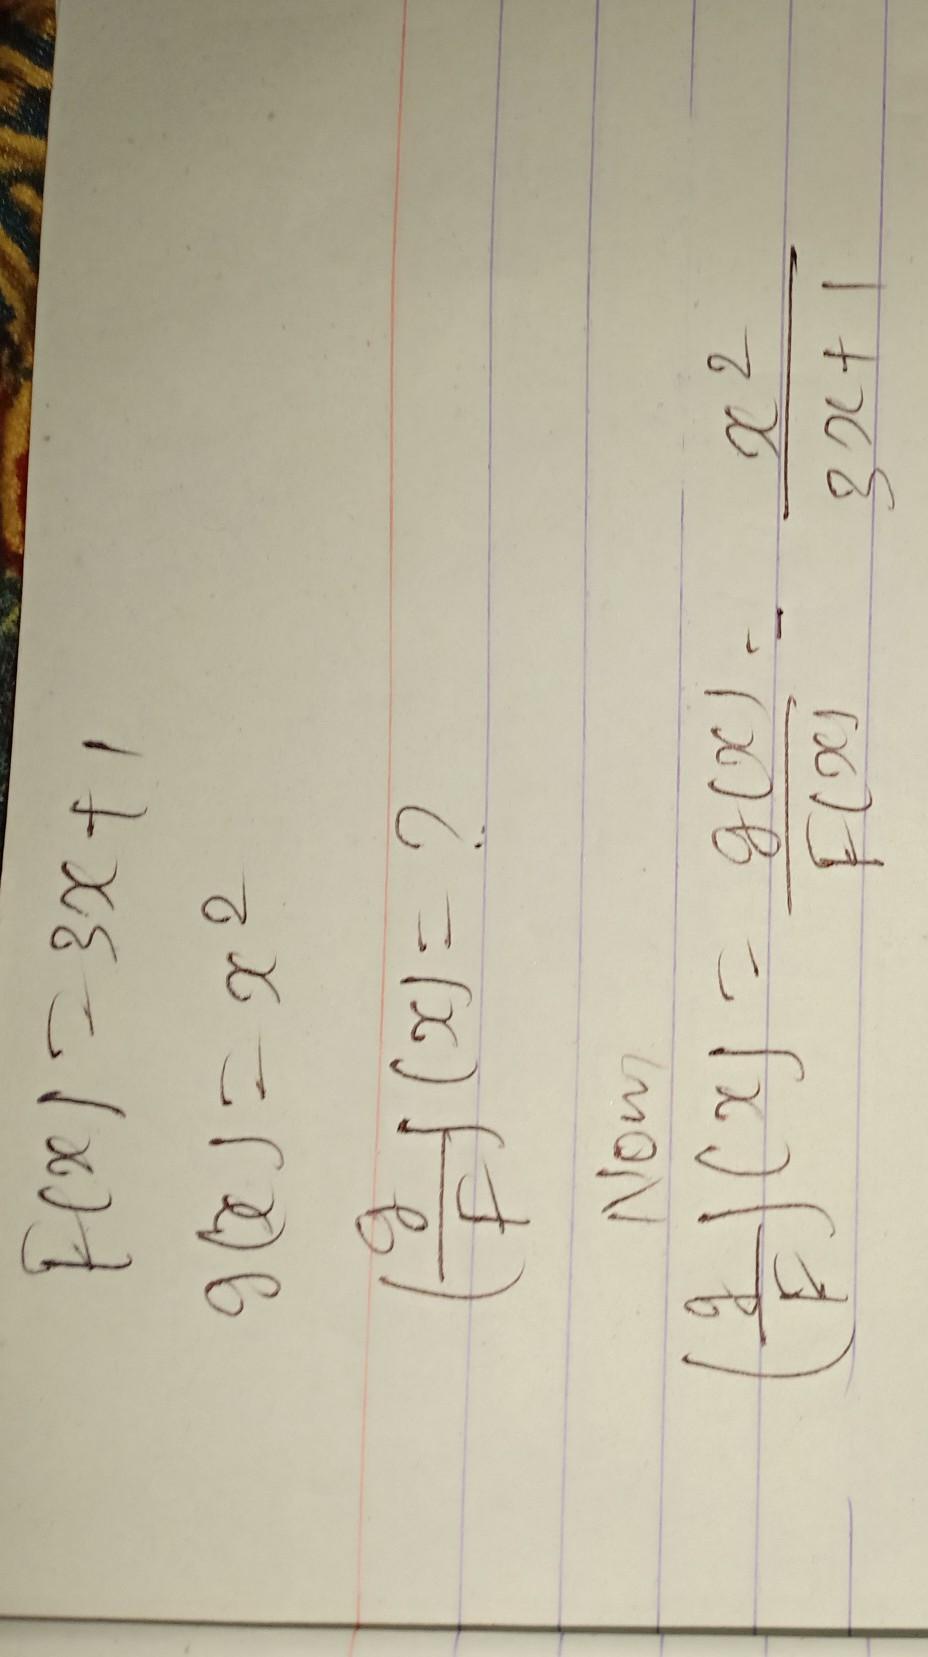 F(x) = 3x + 1
g(x) = x²
(g/F)(x) = ?
Now,
(g/F)(x) = g(x)/F(x) = x²/3x + 1